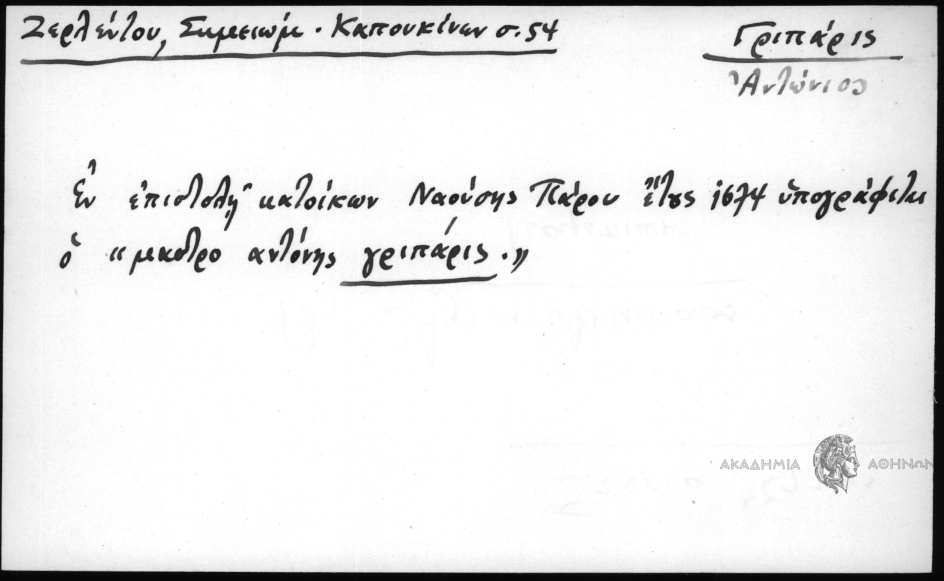 Ζερλέντου, Σημειώμ. Καπουκίνων σ. 54
Γριπάρις
Ἀντώνιος
Ἐν ἐπιστολῇ κατοίκων Ναούσης Πάρου ἔτους 1674 ὑπογράφεται
ὁ «μαστρο αντόνης γριπάρις.»
ΑΚΑΔΗΜΙΑ ΑΘΗΝΩΝ